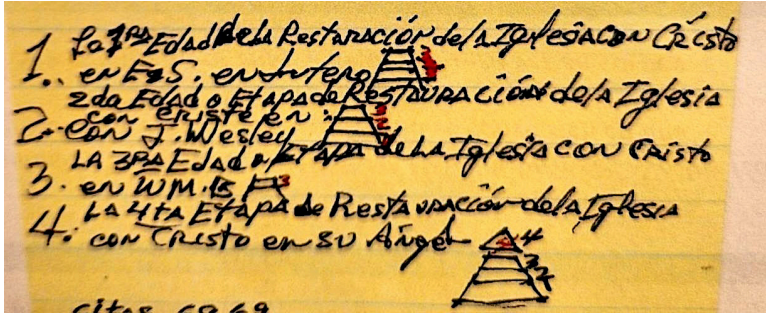 1. La 1RA Edad de la Restauración de la Iglesia con Cristo
en E≈S. en Lutero
2da Edad o Etapa de Restauración de la Iglesia
2. con Cristo en:
con J. Wesley
La 3RA Edad o Etapa de la Iglesia con Cristo
3. en WM. B
La 4ta Etapa de Restauración de la Iglesia
4. con Cristo en su Ángel
citas 68 69